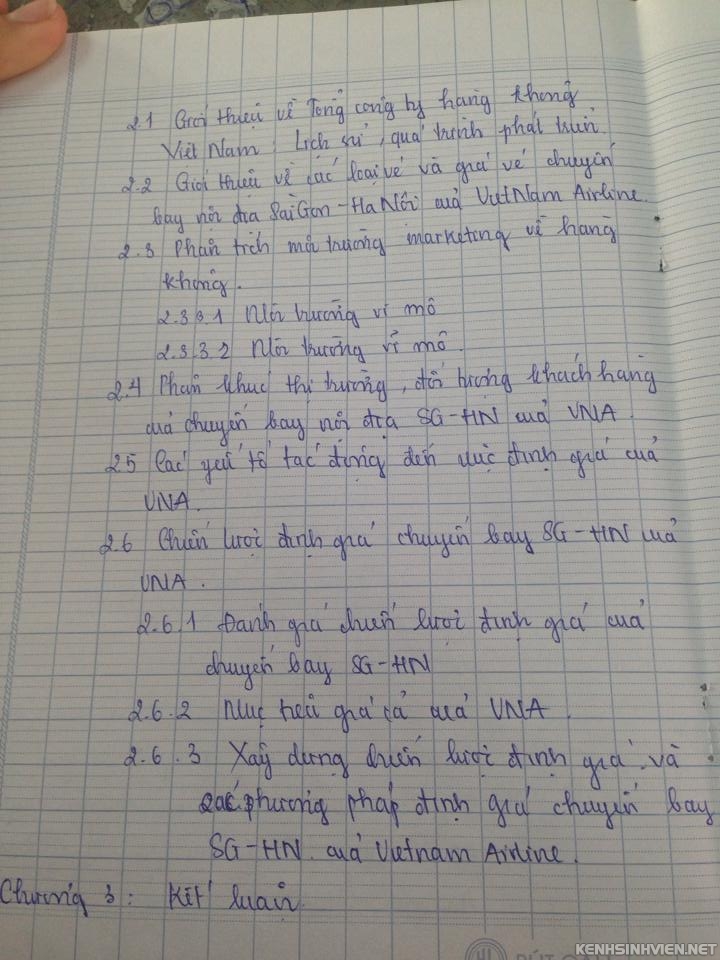 2.1 Giới thiệu về Tổng công ty hàng không
Việt Nam : Lịch sử, quá trình phát triển.
2.2 Giới thiệu về các loại vé và giá vé chuyến
bay nội địa SàiGòn - HàNội của VietNam Airline.
2.3 Phân tích môi trường marketing về hàng
không.
2.3.3.1 Môi trường vi mô
2.3.3.2 Môi trường vĩ mô.
2.4 Phân khúc thị trường, đối tượng khách hàng
của chuyến bay nội địa SG-HN của VNA.
2.5 Các yếu tố tác động đến việc định giá của
VNA.
2.6 Chiến lược định giá chuyến bay SG-HN của
VNA.
2.6.1 Đánh giá chiến lược định giá của
chuyến bay SG-HN
2.6.2 Mục tiêu giá cả của VNA.
2.6.3 Xây dựng chiến lược định giá và
các phương pháp định giá chuyến bay
SG-HN của Vietnam Airline.
Chương 3: Kết luận
KENHSINHVIEN.NET